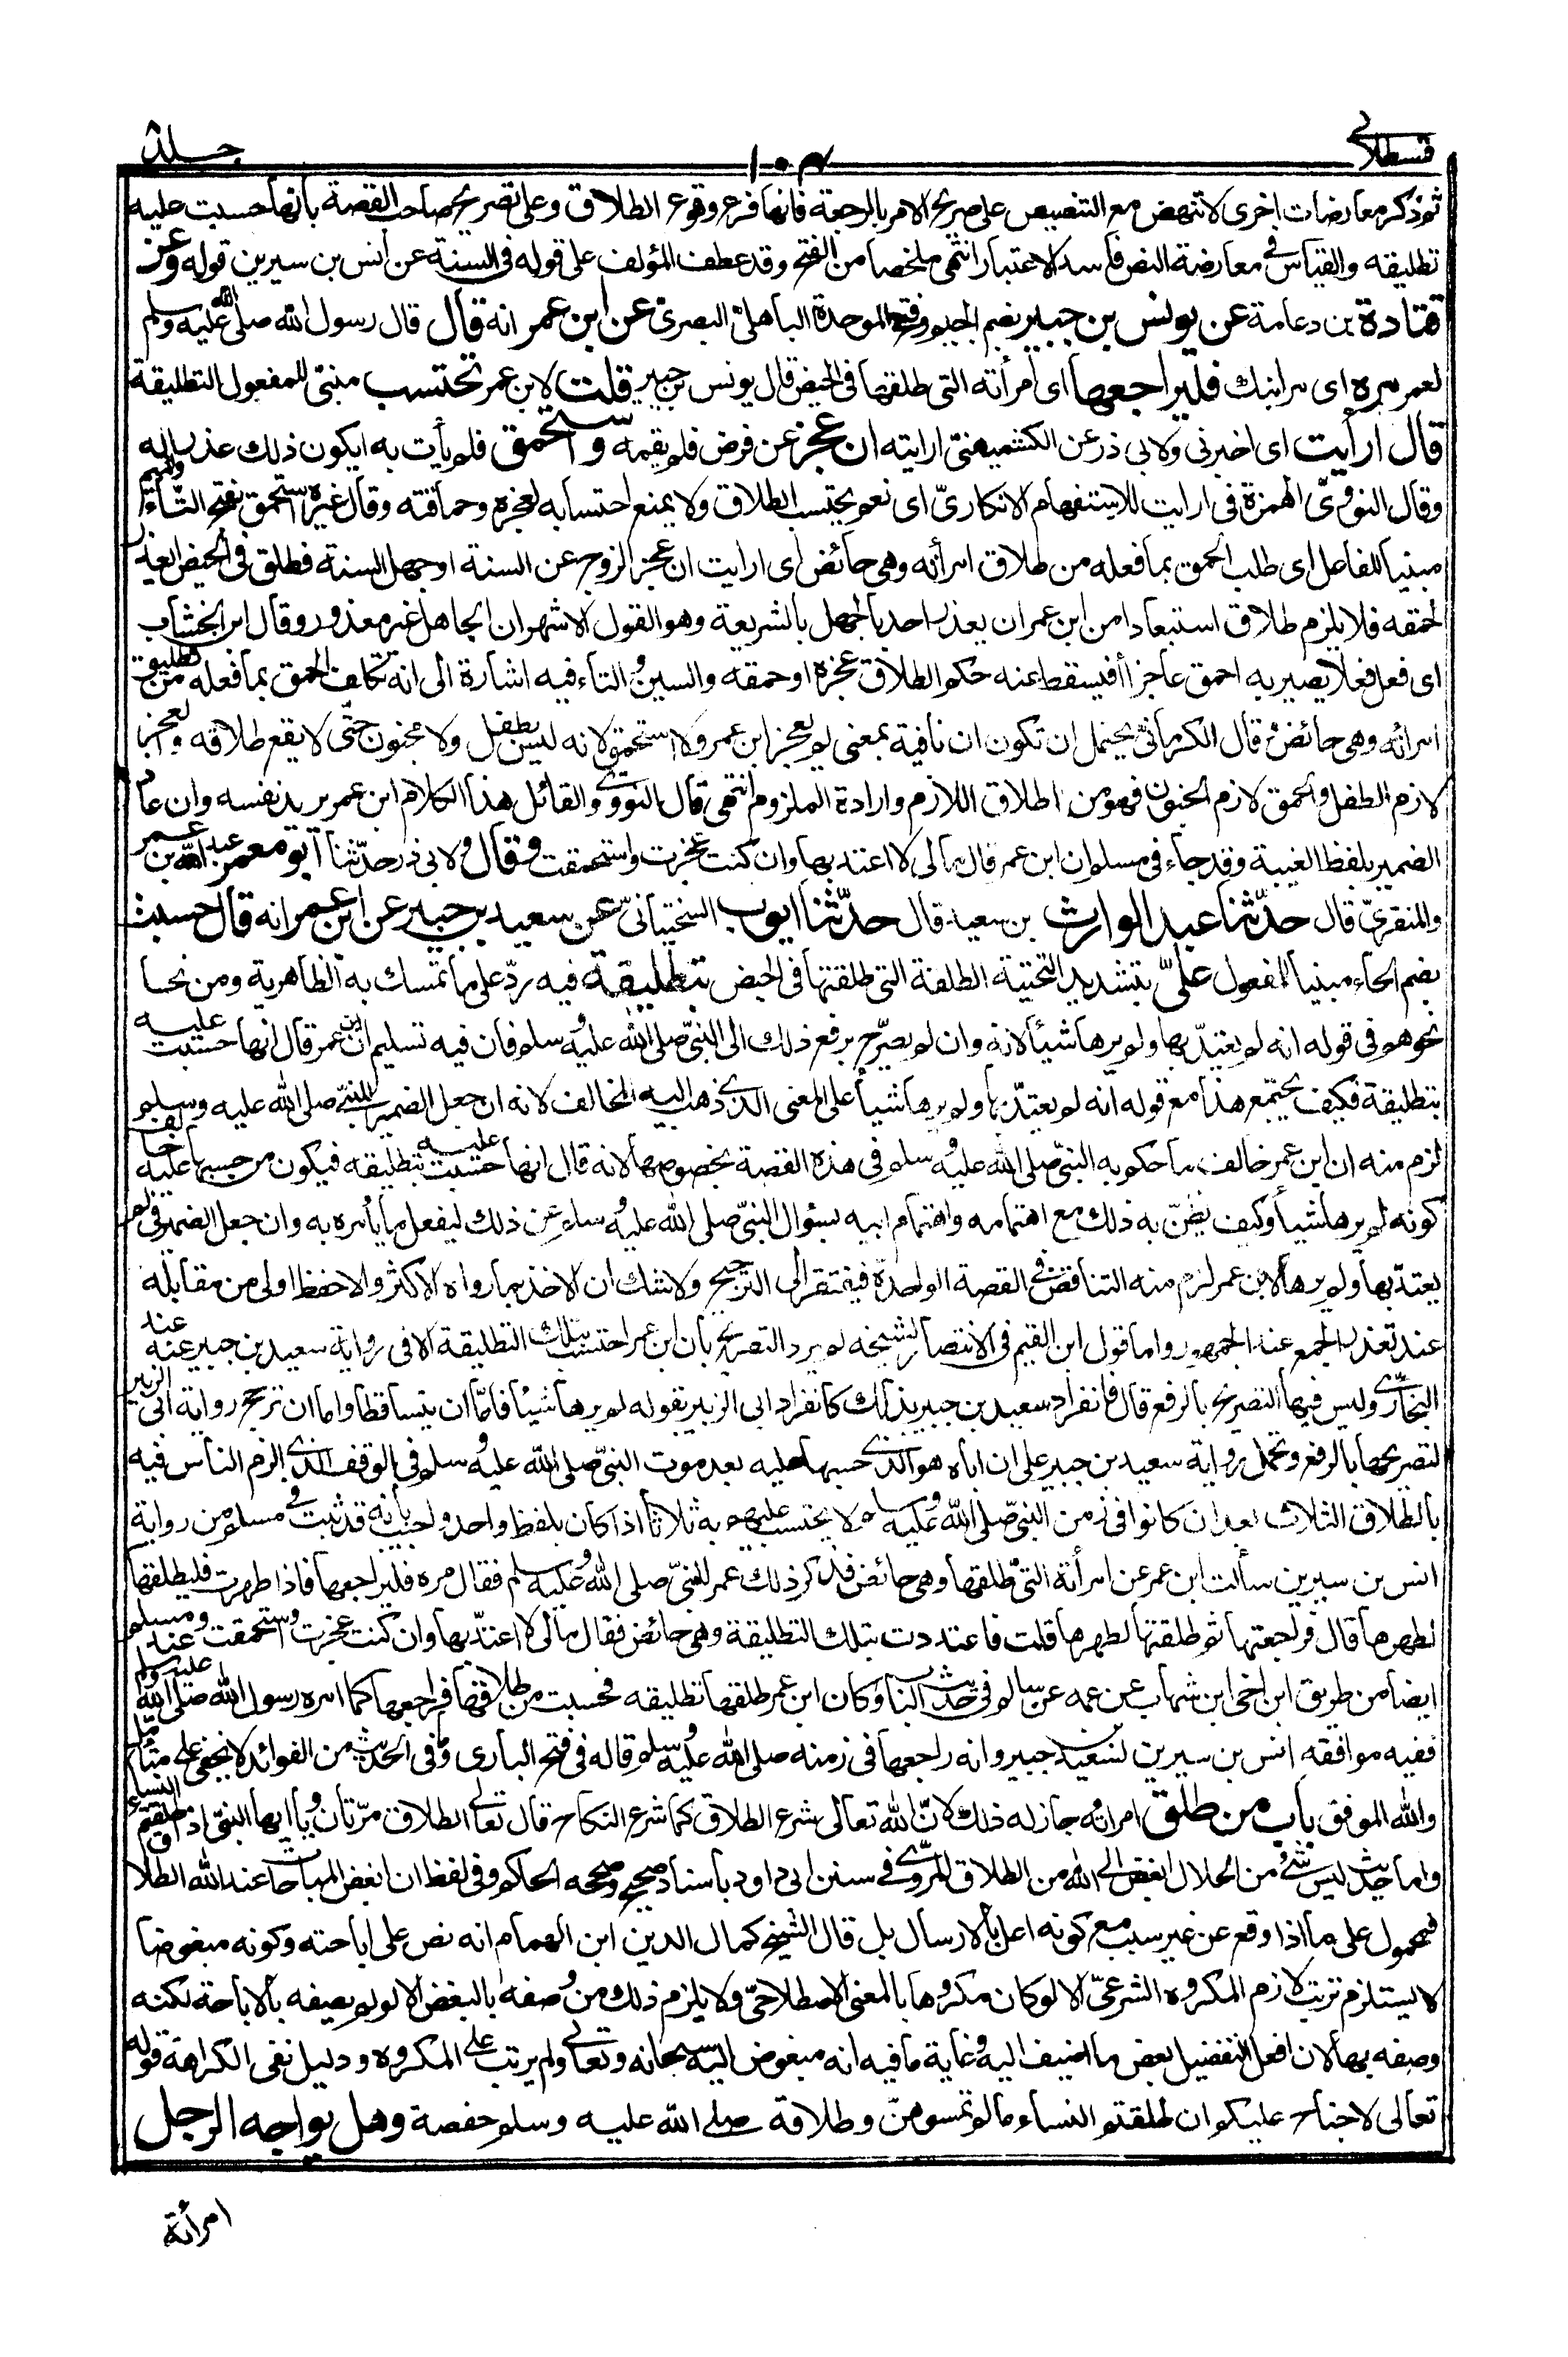 قسطلاني
١٠٣
جلد
ثم ذكر معارضات اخرى لا تنهض مع التنصيص على صريح الامر بالرجعة فانها فرع وقوع الطلاق وعلى تصريح صاحب القصة بانها حسبت عليه
تطليقه والقياس في معارضة النص فاسد الاعتبار انتهى ملخصا من الفتح وقد عطف المؤلف على قوله في السنة عن انس بن سيرين قوله وعن
قتادة بن دعامة عن يونس بن جبير بضم الجيم وفتح الموحدة الباهلىّ البصرىّ عن ابن عمر انه قال قال رسول الله صلى الله عليه وسلم
لعمر مره اى مر ابنك فليراجعها اى امرأته التى طلقها فى الحيض قال يونس بن جبير قلت لابن عمر تحتسب مبنىّ للمفعول التطليقة
قال ارأيت اى اخبرنى ولابى ذر عن الكشميهنى ارايته ان عجز عن فرض فلم يقمه واستحمق فلم يأت به ايكون ذلك عذرا له
وقال النووىّ الهمزة فى ارايت للاستفهام الانكارىّ اى نعم يحتسب الطلاق ولا يمنع احتسابه لعجزه وحماقته وقال غيره استحمق بفتح التاء والميم
مبنيا للفاعل اى طلب الحمق بما فعله من طلاق امرأته وهى حائض اى ارايت ان عجز الزوج عن السنة او جهل السنة فطلق فى الحيض ايعذر
لحمقه فلا يلزم طلاق استبعادا من ابن عمر ان يعذر احد بالجهل بالشريعة وهو القول الاشهر ان الجاهل غير معذور وقال ابن الخشاب
اى فعل فعلا يصير به احمق عاجزا أفيسقط عنه حكم الطلاق عجزه او حمقه والسين والتاء فيه اشارة الى انه تكلف الحمق بما فعله من تطليق
امرأته وهى حائض قال الكرمانىّ يحتمل ان تكون ان نافية بمعنى لم يعجز ابن عمر ولا استحمق لانه ليس بطفل ولا مجنون حتى لا يقع طلاقه والعجز
لازم الطفل والحمق لازم الجنون فهو من اطلاق اللازم وارادة الملزوم انتهى قال النووىّ والقائل هذا الكلام ابن عمر يريد نفسه وان عاد
الضمير بلفظ الغيبة وقد جاء فى مسلم ان ابن عمر قال مالى لا اعتد بها وان كنت عجزت واستحمقت وقال ولابى ذر حدّثنا ابو معمر عبد الله بن عمرو
المنقرىّ قال حدّثنا عبد الوارث بن سعيد قال حدّثنا ايوب السختيانىّ عن سعيد بن جبير عن ابن عمر انه قال حسبت
بضم الحاء مبنيا للمفعول علىّ بتشديد التحتية الطلقة التى طلقتها فى الحيض بتطليقة فيه ردّ على ما تمسك به الظاهرية ومن نحا
نحوهم فى قوله انه لم يعتدّ بها ولم يرها شيأ لانه وان لم يصرّح برفع ذلك الى النبىّ صلى الله عليه وسلم فان فيه تسليم ان ابن عمر قال انها حسبت عليه
بتطليقة فكيف يجتمع هذا مع قوله انه لم يعتدّ بها ولم يرها شيأ على المعنى الذى ذهب اليه المخالف لانه ان جعل الضمير للنبىّ صلى الله عليه وسلم
لزم منه ان ابن عمر خالف ما حكم به النبىّ صلى الله عليه وسلم فى هذه القصة بخصوصها لانه قال انها حسبت عليه بتطليقه فيكون من حسبها عليه خالف
كونه لم يرها شيأ وكيف يظنّ به ذلك مع اهتمامه واهتمام ابيه بسؤال النبىّ صلى الله عليه وسلم عن ذلك ليفعل ما يأمره به وان جعل الضمير فى لم
يعتدّ بها ولم يرها لابن عمر لزم منه التناقض فى القصة الواحدة فيفتقر الى الترجيح ولا شك ان الاخذ بما رواه الاكثر والاحفظ اولى من مقابله
عند تعذر الجمع عند الجمهور واما قول ابن القيم فى الانتصار لشيخه لم يرد التصريح بان ابن عمر احتسب بتلك التطليقة الا فى رواية سعيد بن جبير عنه عند
البخارىّ وليس فيها التصريح بالرفع قال فانفراد سعيد بن جبير بذلك كانفراد ابى الزبير بقوله لم يرها شيأ فامّا ان يتساقطا واما ان ترجح رواية ابى الزبير
لتصريحها بالرفع وتحمل رواية سعيد بن جبير على ان اباه هو الذى حسبها عليه بعد موت النبىّ صلى الله عليه وسلم فى الوقف الذى الزم الناس فيه
بالطلاق الثلاث بعد ان كانوا فى زمن النبىّ صلى الله عليه وسلم لا يحتسب عليهم به ثلاثا اذا كان بلفظ واحد واجيب بانه قد ثبت فى مسلم من رواية
انس بن سيرين سألت ابن عمر عن امرأته التى طلقها وهى حائض فذكر ذلك عمر للنبىّ صلى الله عليه وسلم فقال مره فليراجعها فاذا طهرت فليطلقها
لطهرها قال فراجعتها ثم طلقتها لطهرها قلت فاعتددت بتلك التطليقة وهى حائض فقال مالى لا اعتدّ بها وان كنت عجزت واستحمقت وعند مسلم
ايضا من طريق ابن اخى ابن شهاب عن عمه عن سالم فى حديث الباب وكان ابن عمر طلقها تطليقه فحسبت من طلاقها فراجعها كما امره رسول الله صلى الله عليه وسلم
ففيه موافقه انس بن سيرين لسعيد بن جبير وانه راجعها فى زمنه صلى الله عليه وسلم قاله فى فتح البارى وفى الحديث من الفوائد لا يخفى على متأمل
والله الموفق باب من طلق امرأته جاز له ذلك لانّ الله تعالى شرع الطلاق كما شرع النكاح قال تعالى الطلاق مرّتان ويا ايها النبىّ اذا طلقتم النساء
واما حديث ليس شئ من الحلال ابغض الى الله من الطلاق المروىّ فى سنن ابى داود باسناد صحيح وصححه الحاكم وفى لفظ ان ابغض المباحات عند الله الطلاق
فمحمول على ما اذا وقع عن غير سبب مع كونه اعل بالارسال بل قال الشيخ كمال الدين ابن الهمام انه نص على اباحته وكونه مبغوضا
لا يستلزم ترتب لازم المكروه الشرعىّ الا لو كان مكروها بالمعنى الاصطلاحىّ ولا يلزم ذلك من وصفه بالبغض الا لو لم يصفه بالاباحة لكنه
وصفه بها لان افعل التفضيل بعض ما اضيف اليه وغاية ما فيه انه مبغوض اليه سبحانه وتعالى ولم يرتب على المكروه ودليل نفى الكراهة قوله
تعالى لا جناح عليكم ان طلقتم النساء ما لم تمسوهنّ وطلاقه صلى الله عليه وسلم حفصة وهل يواجه الرجل
امرأته